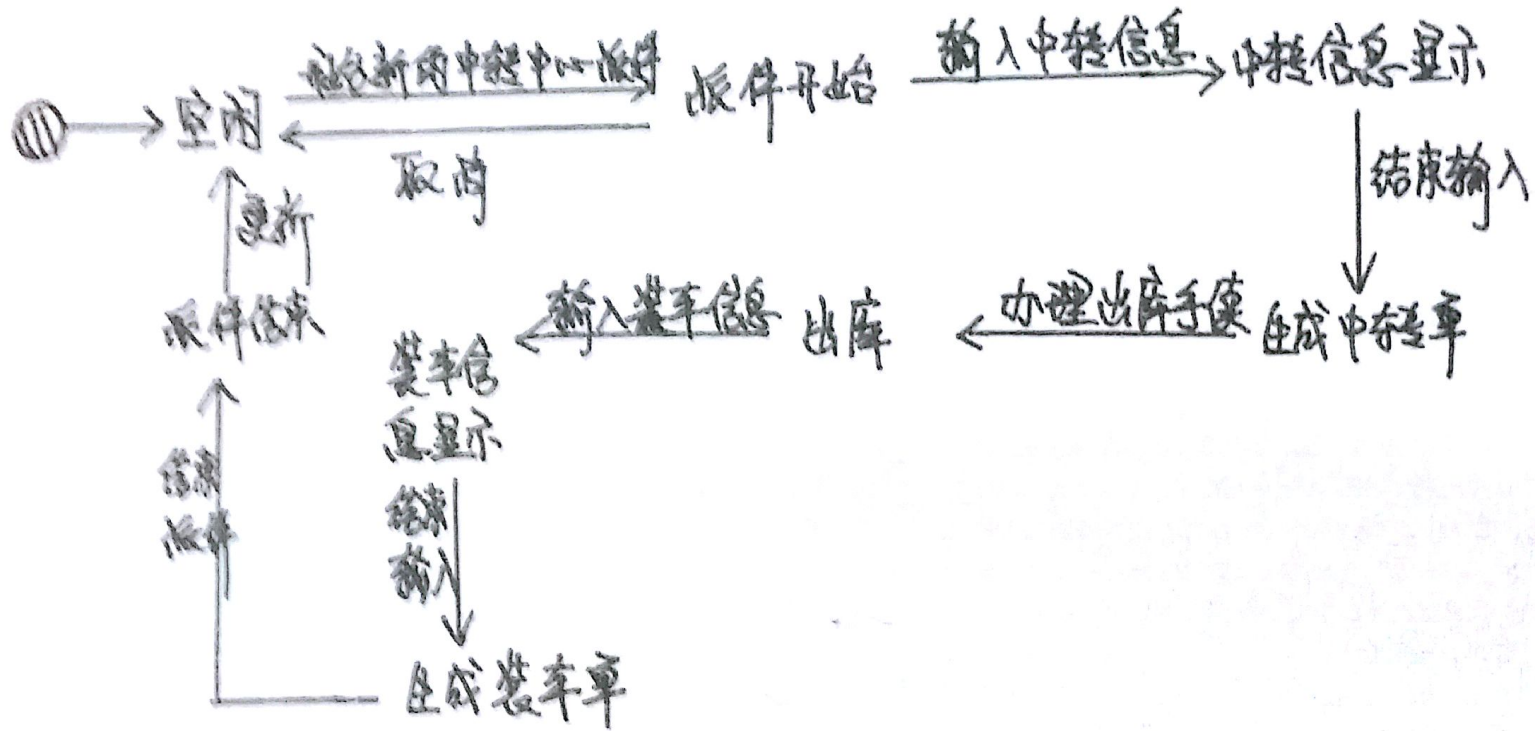 新的中转中心派件
输入中转信息
空闲
派件开始
中转信息显示
取消
结束输入
更新
派件结束
输入装车信息
出库
办理出库手续
生成中转单
装车信
息显示
结束
派件
结束
输入
生成装车单